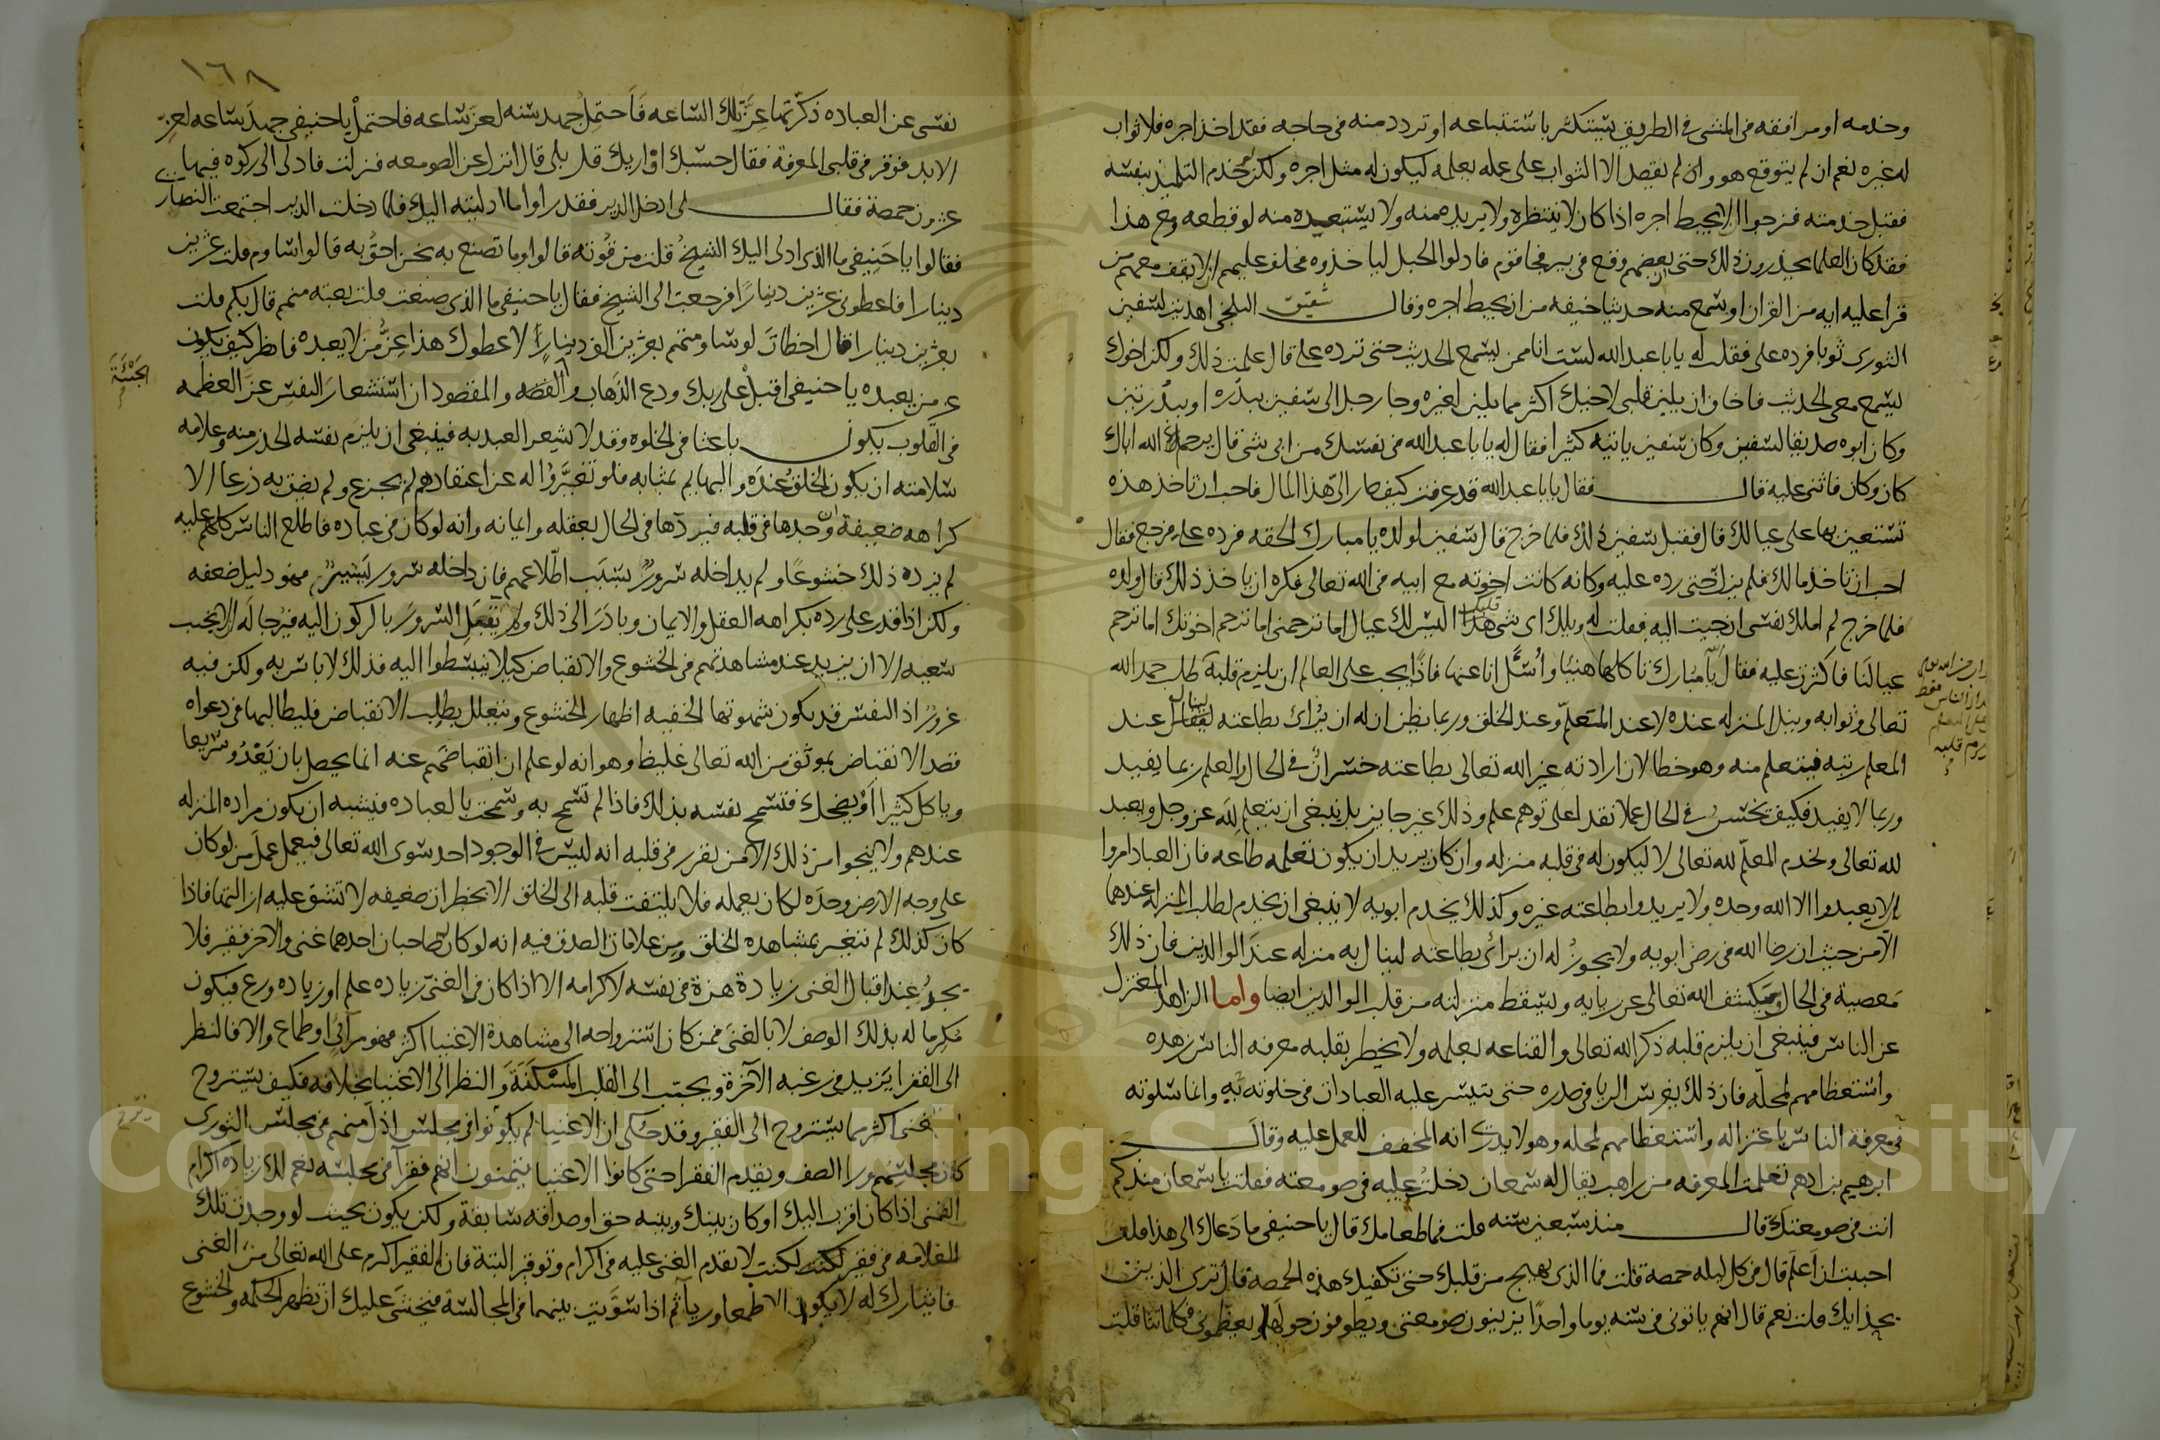 وخدمه او مرافقه فى المشى فى الطريق ليستكثر باستتباعه او تردد منه فى حاجه فقد اخذ اجره فلا ثواب
له غيره نعم ان لم يتوقع هو وان لم يقصد الا الثواب على عمله بعلمه ليكون له مثل اجره ولكن خدمه التلميذ بنفسه
فقبل خدمته فنرجوا ان لا يحبط اجره اذا كان لا ينتظره ولا يريده منه ولا يستبعده منه لو قطعه ومع هذا
فقد كان العلما يحذرون ذلك حتى ان بعضهم وقع فى بير فجا قوم فادلوا الحبل لياخذوه فحلف عليهم ان لا يقف معهم من
قرا عليه ايه من القران او سمع منه حديثا خيفه من ان يحبط اجره وقال شقيق البلخى اهديت لسفين
الثورى ثوبا فرده على فقلت له يابا عبد الله لست انا ممن يسمع الحديث حتى ترده على قال علمت ذلك ولكن اخوك
يسمع منى الحديث فاخاف ان يلين قلبى لاخيك اكثر مما يلين لغيره وجا رجل الى سفين ببدره او ببدرتين
وكان ابوه صديقا لسفين وكان سفين ياتيه كثيرا فقال له يابا عبد الله فى نفسك من ابى شى قال يرحم الله اباك
كان وكان فاثنى عليه قال فقال يابا عبد الله قد عرفت كيف صار الى هذا المال فاحب ان تاخذ هذه
تستعين بها على عيالك قال فقبل سفين ذلك فلما خرج قال سفين لولده يا مبارك الحقه فرده على فرجع فقال
احب ان تاخذ مالك فلم يزل حتى رده عليه وكانه كانت اخوته مع ابيه فى الله تعالى فكره ان ياخذ ذلك قال ولده
فلما خرج لم املك نفسى ان جيت اليه فقلت له ويلك اى شى قلبك هذا اليس لك عيال اما ترحمنى اما ترحم اخوتك اما ترحم
عيالنا فاكثرت عليه فقال يا مبارك تاكلها هنيا واسئل انا عنها فاذا يجب على العالم ان يلزم قلبه طلب حمد الله
تعالى وثوابه ونيل المنزله عنده لا عند المتعلم وعند الخلق وربما يظن ان له ان يرائى بطاعته لينال عند
المعلم رتبه فيتعلم منه وهو خطا لان ارادته غير الله تعالى بطاعته خسران فى الحال والعلم ربما يفيد
وربما لا يفيد فكيف يخسر فى الحال عملا نقدا على توهم علم وذلك غير جايز بل ينبغى ان يتعلم لله عز وجل ويعبد
لله تعالى ويخدم المعلم لله تعالى لا ليكون له فى قلبه منزله وان كان يريد ان يكون تعلمه طاعه فان العباد امروا
ان لا يعبدوا الا الله وحده ولا يريدوا بطاعته غيره وكذلك يخدم ابويه لا ينبغى ان يخدم لطلب المنزله عندهما
الا من حيث ان رضا الله فى رضى ابويه ولا يجوز له ان يرائى بطاعته لينال به منزله عند الوالدين فان ذلك
معصية فى الحال وسيكشف الله تعالى عن ريايه ويسقط منزلته من قلب الوالدين ايضا واما الزاهد المعتزل
عن الناس فينبغى ان يلزم قلبه ذكر الله تعالى والقناعه بعلمه ولا يخطر بقلبه معرفه الناس زهده
واستعظامهم لمحله فان ذلك يغرس الريا فى صدره حتى تتيسر عليه العبادات فى خلوته به وانما سلوته
فى معرفة الناس باعتزاله واستعظامهم لمحله وهو لا يدرى انه المخفف للعمل عليه وقال
ابرهيم بن ادهم تعلمت المعرفه من راهب يقال له سمعان دخلت عليه فى صومعته فقلت يا سمعان منذ كم
انت فى صومعتك قال منذ سبعين سنه قلت فما طعامك قال يا حنيفى ما دعاك الى هذا قلت
احببت ان اعلم قال فى كل ليله حمصة قلت فما الذى يهيج من قلبك حتى تكفيك هذه الحمصة قال ترى الدير
بحذايك قلت نعم قال انهم ياتونى فى سنه يوما واحدا يزينون صومعتى ويطوفون حولها ويعظمونى فكلما تثاقلت
١٦٨
نفسى عن العباده ذكرتها عز تلك الساعه فاحتمل جهد سنه لعز ساعه فاحتمل يا حنيفى جهد ساعه لعز
الابد فوقر فى قلبى المعرفة فقال حسبك او ازيدك قلت بلى قال انزل عن الصومعه فنزلت فادلى الى ركوه فيها
عشرون حمصة فقال لى ادخل الدير فقد راوا ما ادليته اليك فلما دخلت الدير اجتمعت النصارى
فقالوا يا حنيفى ما الذى ادلى اليك الشيخ قلت من قوته قالوا وما تصنع به نحن احق به قالوا ساوم قلت عشرين
دينارا فاعطونى عشرين دينارا فرجعت الى الشيخ فقال يا حنيفى ما الذى صنعت قلت بعته منهم قال بكم قلت
بعشرين دينارا قال اخطات لو ساومتهم بعشرين الف دينار لاعطوك هذا عز من لا يعبده فانظر كيف يكون
عز من يعبده يا حنيفى اقبل على ربك ودع الذهاب والقصه والمقصود ان استشعار النفس عز العظمه
الجَيْئَةَ
فى القلوب يكون باعثا فى الخلوه وقد لا يشعر العبد به فينبغى ان يلزم نفسه الحذر منه وعلامه
سلامته ان يكون الخلق عنده والبهايم بمثابه فلو تغيروا له عن اعتقادهم لم يجزع ولم يضق به ذرعا الا
كراهه ضعيفة وان وجدها فى قلبه فيردها فى الحال بعقله وايمانه وانه لو كان فى عباده فاطلع الناس كلهم عليه
لم يزده ذلك خشوعا ولم يداخله سرور بسبب اطلاعهم فان داخله سرور يسير فهو دليل ضعفه
ولكن اذا قدر على رده بكراهه العقل والايمان وبادر الى ذلك ولم يقبل السرور بالركون اليه فيرجا له ان لا يخيب
سعيه الا ان يزيد عند مشاهدتهم فى الخشوع والانقباض كيلا ينبسطوا اليه فذلك لا باس به ولكن فيه
غرور اذ النفس قد يكون شهوتها الخفيه اظهار الخشوع وتتعلل بطلب الانقباض فليطالبها فى دعواه
قصد الانقباض بموثق من الله تعالى غليظ وهو انه لو علم ان انقباضهم عنه انما يحصل بان يعدو سريعا
وياكل كثيرا او يضحك فتسمح نفسه بذلك فاذا لم تسمح به وسمحت بالعباده فيشبه ان يكون مراده المنزله
عندهم ولا ينجوا من ذلك الا من تقرر فى قلبه انه ليس فى الوجود احد سوى الله تعالى فيعمل عمل من لو كان
على وجه الارض وحده لكان يعمله فلا يلتفت قلبه الى الخلق الا بخطرات ضعيفه لا تشق عليه ازالتها فاذا
كان كذلك لم تتغير بمشاهده الخلق ومن علامات الصدق فيه انه لو كان له صاحبان احدهما غنى والاخر فقير فلا
يجد عند اقبال الغنى زيادة هزة فى نفسه لاكرامه الا اذا كان فى الغنى زياده علم او زياده ورع فيكون
مكرما له بذلك الوصف لا بالغنى فمن كان استرواحه الى مشاهدة الاغنيا اكثر فهو مراىٍ او طماع والا فالنظر
الى الفقرا يزيد فى رغبه الآخرة ويحبب الى القلب المسكنة والنظر الى الاغنيا بخلافه فكيف يستروح
بالغنى اكثر مما يستروح الى الفقير وقد حكى ان الاغنيا لم يكونوا فى مجلس اذل منهم فى مجلس الثورى
كان يجلسهم ورا الصف ويقدم الفقرا حتى كانوا الاغنيا يتمنون انهم فقرآ فى مجلسه نعم لك زياده اكرام
الغنى اذا كان اقرب اليك او كان بينك وبينه حق او صداقه سابقة ولكن يكون بحيث لو وجدت تلك
العلامه فى فقير لكنت لا تقدم الغنى عليه فى اكرام وتوقير البتة فان الفقير اكرم على الله تعالى من الغنى
فايثارك له لا يكون الا طمعا وريآ ثم اذا سويت بينهما فى المجالسة فيخشى عليك ان تظهر الحكمه والخشوع